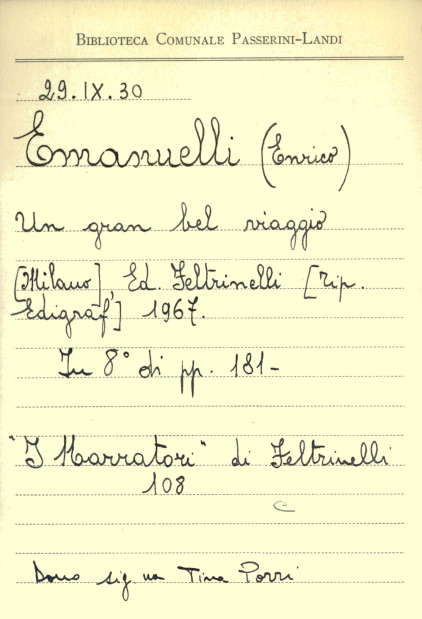 BIBLIOTECA COMUNALE PASSERINI-LANDI
29.IX.30
Emanuelli (Enrico)
Un gran bel viaggio
[Milano], Ed. Feltrinelli [Tip.
Edigraf] 1967.
In 8° di pp. 181-
"I Narratori" di Feltrinelli
108
Dono sig na Tina Porri